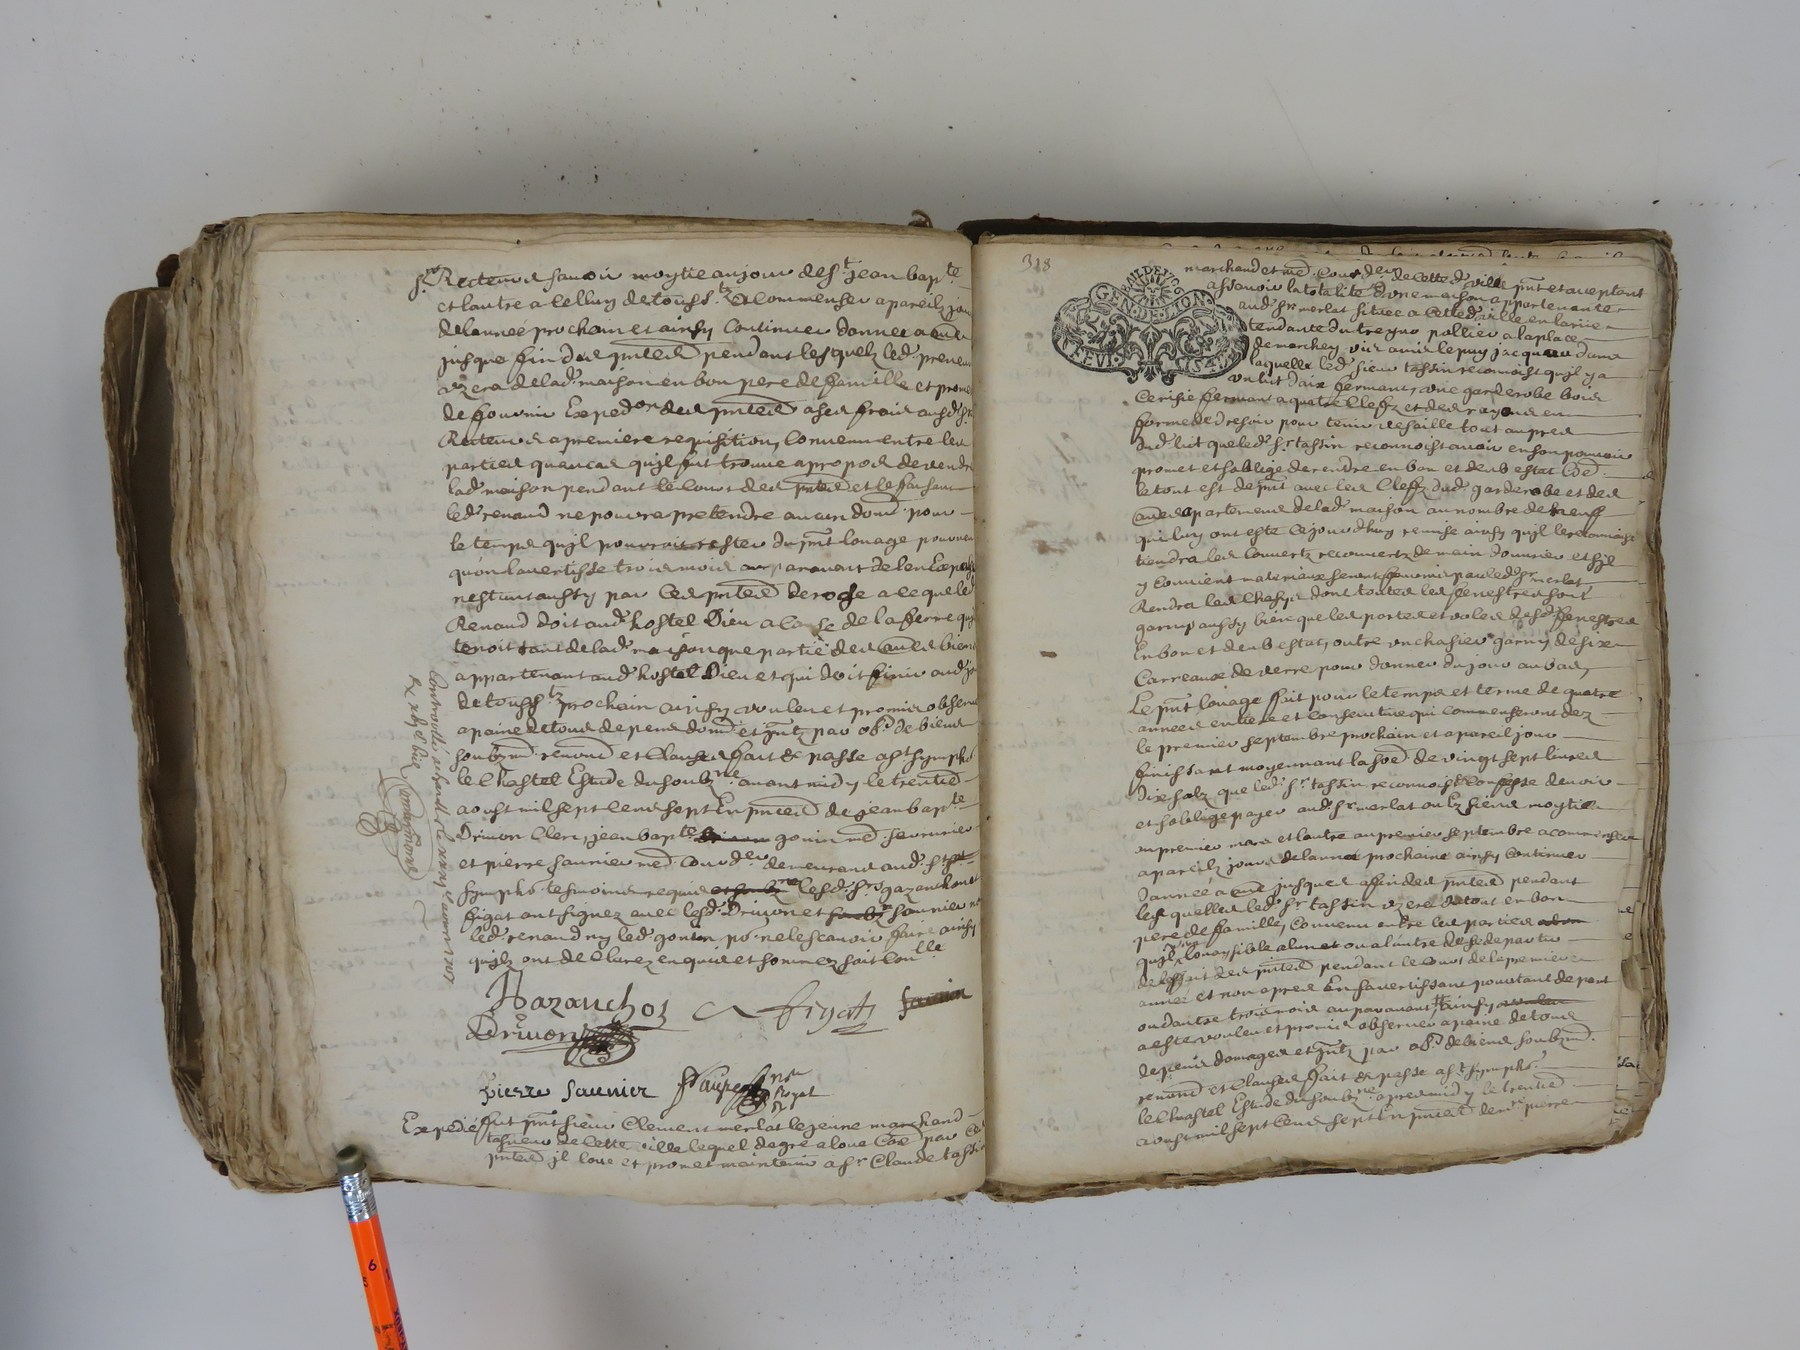 Srs Recteurs sauoir moytie au jour de st jean bapte
et lautre a celluy de touss.tz et commenser a pareilz jour
de lannee prochaine et ainsy continuer dannee a
jusque fin des pntes pendant lesquelz led. preneur
de lad. maison en bon pere de famille et promet
de fournir expedon des pntes a ses frais ausd. srs
Recteurs a premiere requisition, Conuenu entre les
parties quaucas quil fut trouue a propos de vendre
lad. maison pendant le cours des pntes et le faisant
led. renaud ne pourra pretendre aucun dom. pour
le temps quil pourroit rester du pnt louage pourueu
quon lauertisse trois mois auparauant de len
nestant aussy par ces pntes deroge a ce que led.
Renaud doit aud. hostel Dieu a cause de la ferme quil
tenoit tant de lad. maison que partie des biens
appartenant aud. hostel Dieu et qui doit finir aud. jour
de touss.tz prochain ainsy vouleu et promis obseruer
a paine de tous despens dom. et par ob. de biens
soubzm. renon et Clauses fait et passe a st sympho
le Chastel Estude du soubz.ne auant midy le trentie
aoust mil sept cens sept En pntes de jean bapte
Driuon Clerc, jean bapte gonin me serrurier
et pierre saunier me Cour.der demeurans aud. st
sympho. tesmoins requis lesd. srs gazanchon et
figat ont signez auec lesd. Driuon et saunier
led. renaud ny led. gonin pr ne le scauoir faire ainsy
quilz ont declarez enquis et sommez soit con.lle
Hazanchoz figat
Driuon
pierre saunier
royal
Expedie fut pnt sieur Clement merlat le jeune marchand
taneur de cette ville lequel de gre a loue Coe par Ces
pntes il loue et promet maintenir a sr Claude tassin
Controlle a st
1707
318
GEN. DE LYON
marchand et me Cour.der de cette d. ville pnt et aceptant
assauoir la totalite dune maison appartenante
aud. sr merlat situee a cette d. ville en la rue
tendante du treyue pollier a la place
de marchey vis a vis le puy jacqueu dans
laquelle led. sieur tassin reconnoist quil y a
vn lict daix fermant, vne garderobe bois
Cerisie fermant a quatre cleffz et des rayons en
forme de dresoir pour tenir vesselle tout aupres
dud. lict que led. sr tassin reconnoist auoir en son pouuoir
promet et soblige de rendre en bon et deub estat Coe
le tout est de pnt auec les Cleffz dud. garderobe et des
apartemens de lad. maison au nombre de neuf
qui luy ont este cejourdhuy remise ainsy quil le reconnoist
tiendra les Couuertz recouuertz de main douurier et sil
y Conuient materiaux seront fournis par led. sr merlat
Rendra les Chassis dont toutes les fenestres sont
garny aussy bien que les portes et voles desd. fenestres
En bon et deub estat, outre vn chasier garny de six
Carreaux de verre pour donner du jour au bas
Le pnt louage fait pour le temps et terme de quatre
annees entiere et consecutiue qui commenseront dez
le premier septembre prochain et a pareil jour
finissant moyennant la soe de vingt sept liures
dix solz que led. sr tassin reconnoist confesse deuoir
et soblige payer aud. sr merlat ou es siens moytie
au premier mars et lautre au premier septembre a commenser
a pareilz jours de lannee prochaine ainsy continuer
dannee a jusques a fin des pntes pendant
lesquelles led. sr tassin vzera de tout en bon
pere de famille, Conuenu entre les parties
quil sera loysible a lun et ou a lautre de se departir
de leffait des pntes pendant le cours de la premiere
annee et non apres En sauertissant pourtant de part
ou dautre trois mois auparauant ainsy
a este voulu et promis obseruer a paine de tous
despens domages et par ob. de biens soubzm.
renon et Clauses fait et passe a st sympho
le Chastel Estude du soubz.ne apres midy le trentie
aoust mil sept cens sept En pntes de me pierre